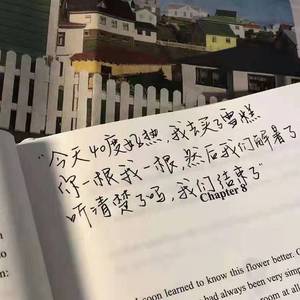 "今天40度好热,我去买了雪糕
你一根我一根,然后我们解暑了
听清楚了吗,我们结束了"
Chapter 8
soon learned to know this flower better.
had always been very simp
oon at all